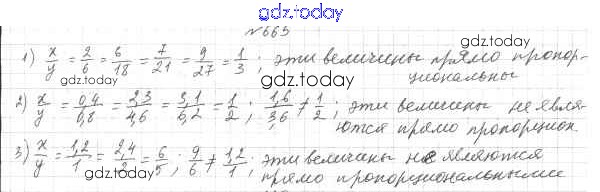 gdz.today
№ 663
1) x/y = 2/6 = 6/18 = 7/21 = 9/27 = 1/3 ; эти величины прямо пропор-
gdz.today
циональны
2) x/y = 0,4/0,8 = 2,3/4,6 = 3,1/6,2 = 1/2 ; 1,6/3,6 ≠ 1/2 ; эти величины не явля-
ются прямо пропорцион.
gdz.today
3) x/y = 1,2/1 = 2,4/2 = 6/5 ; 9/6 ≠ 1,2/1 ; эти величины не являются
прямо пропорциональными
gdz.today